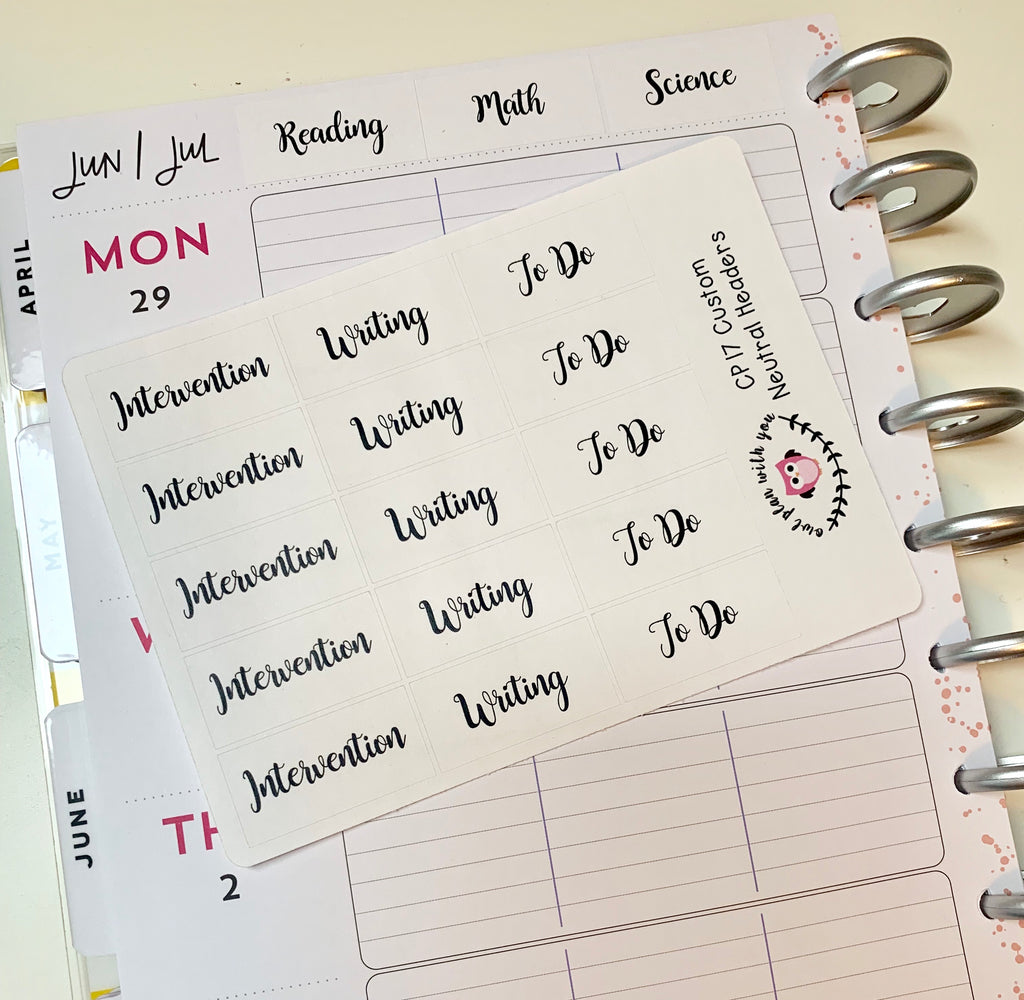 JUN / JUL
Reading
Math
Science
MON
29
APRIL
MAY
JUNE
TH
2
Intervention
Writing
To Do
Intervention
Writing
To Do
Intervention
Writing
To Do
Intervention
Writing
To Do
Intervention
Writing
To Do
CP17 Custom
Neutral Headers
owl plan with you